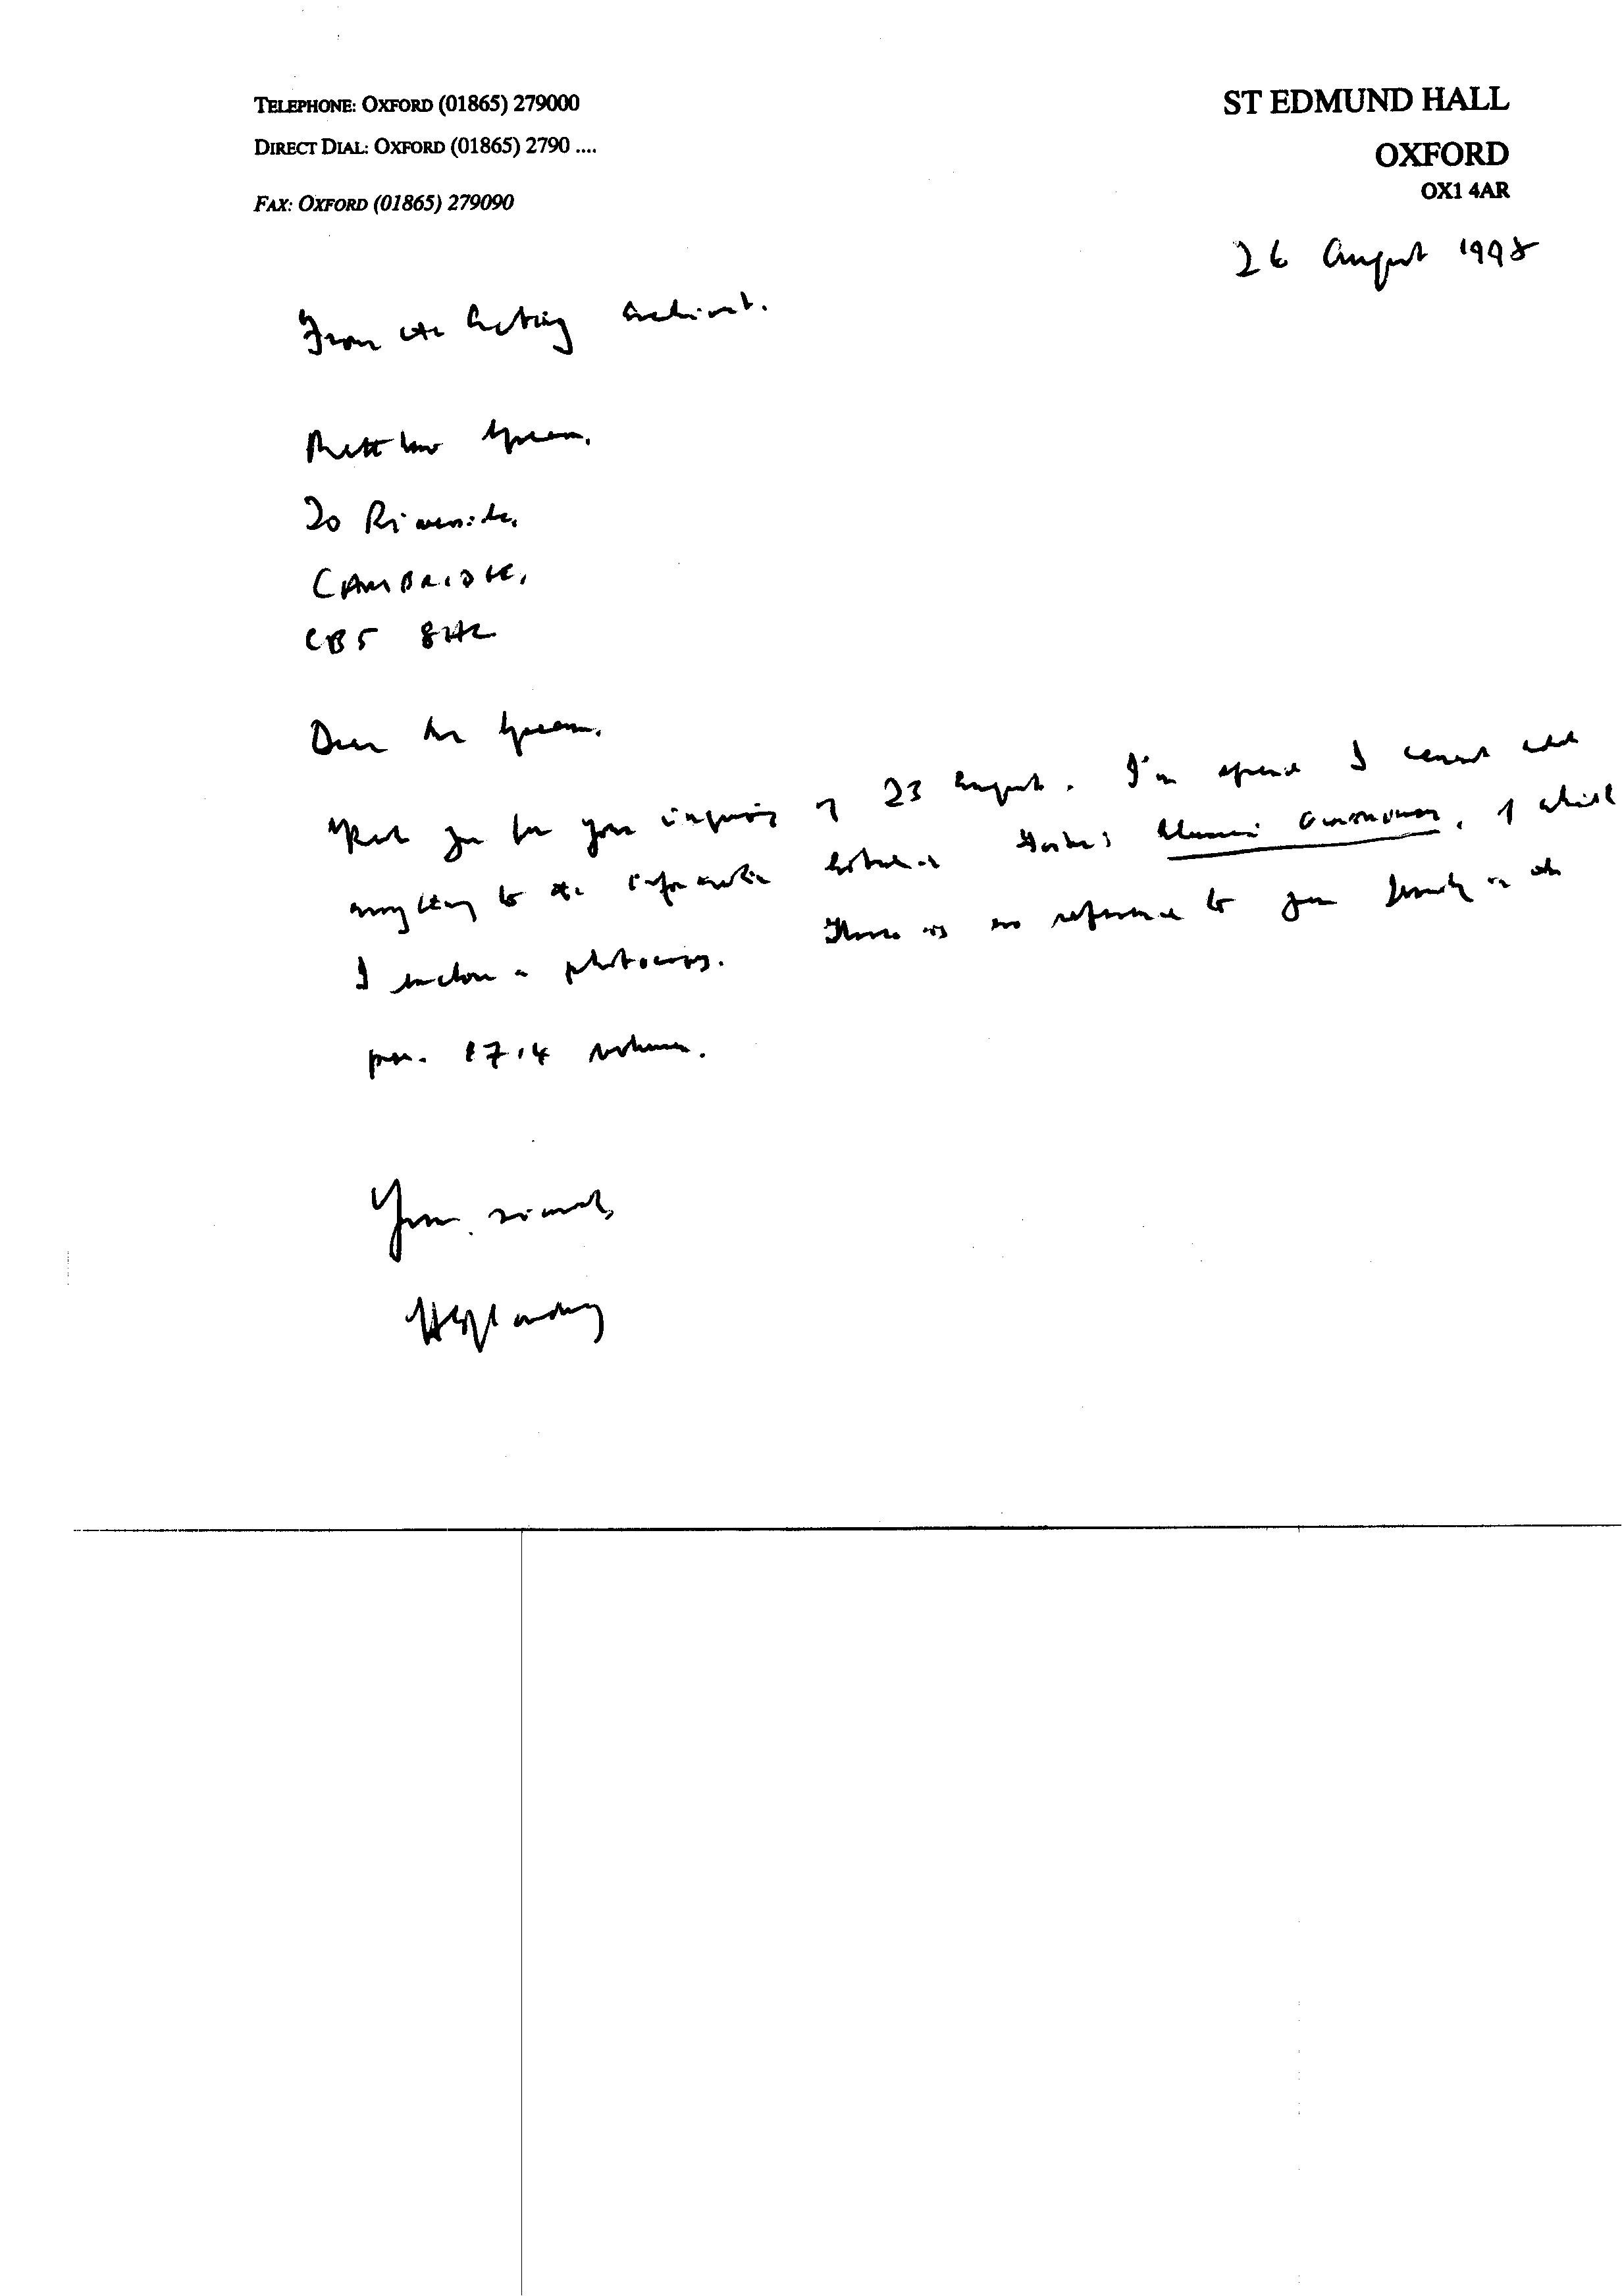 TELEPHONE: OXFORD (01865) 279000
DIRECT DIAL: OXFORD (01865) 2790 ....
FAX: OXFORD (01865) 279090
ST EDMUND HALL
OXFORD
OX1 4AR
26 August 1998
From the Acting Archivist.
Matthew
20 Riverside,
CAMBRIDGE,
CB5 8HL
Dear Mr
Thank you for your inquiry of 23 August. I'm afraid I cannot add
anything to the information Foster's Alumni Oxonienses, of which
I enclose a photocopy. There is no reference to your family in the
pre-1714 volumes.
Yours sincerely,